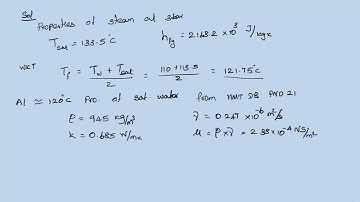 Sol
Properties of steam at 3bar
Tsat = 133.5°C hfg = 2163.2 × 10³ J/kgk
WKT Tf = Tw + Tsat / 2 = 110 + 113.5 / 2 = 121.75°C
At ≈ 120°C Pro. of sat water from HMT DB PNO 21
ρ = 945 kg/m³ γ = 0.247 × 10⁻⁶ m²/s
k = 0.685 W/mk μ = ρ × γ × 2.33 × 10⁻⁴ NS/m²